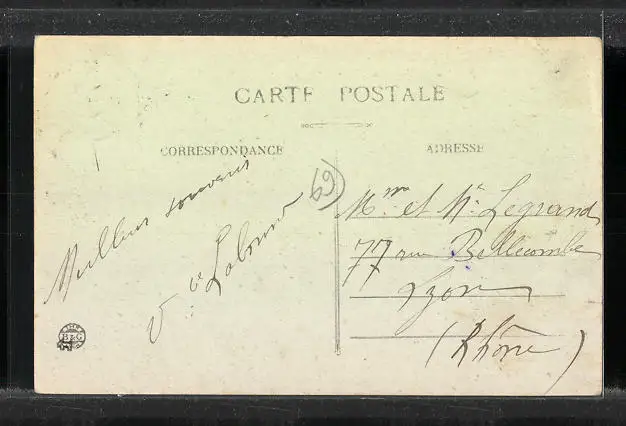 CARTE POSTALE
CORRESPONDANCE
ADRESSE
Meilleur souvenir
69
Mme et Mr Legrand
77 rue Bellecombe
Lyon
(Rhône)
B&G